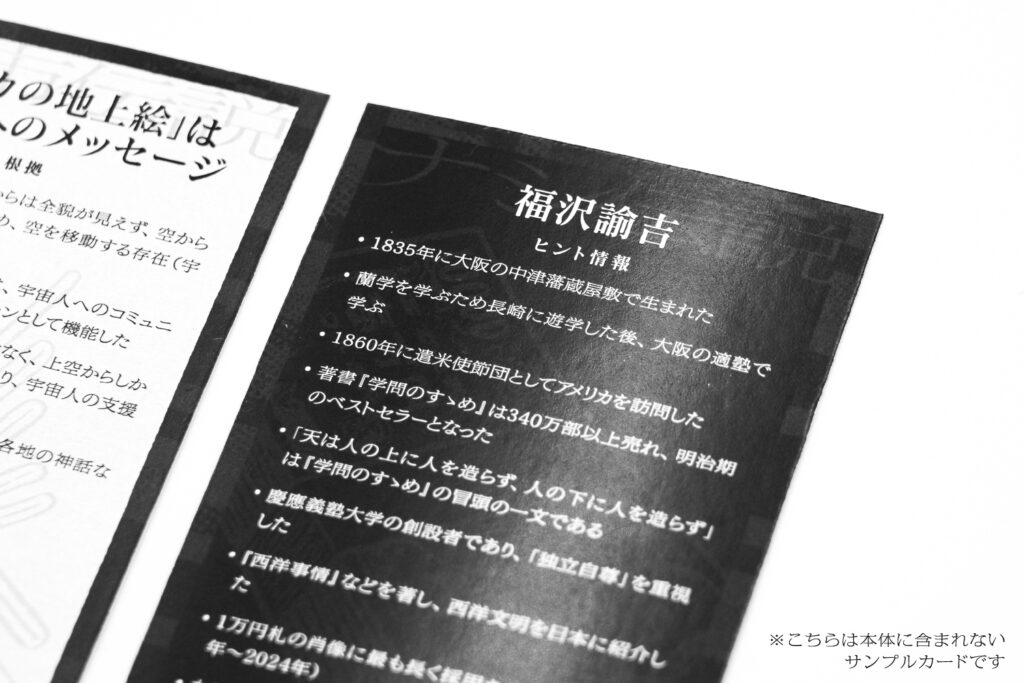 カの地上絵」は
へのメッセージ
根拠
からは全貌が見えず、空から
め、空を移動する存在(宇
、宇宙人へのコミュニ
ンとして機能した
なく、上空からしか
り、宇宙人の支援
各地の神話な
福沢諭吉
ヒント情報
• 1835年に大阪の中津藩蔵屋敷で生まれた
• 蘭学を学ぶため長崎に遊学した後、大阪の適塾で
学ぶ
• 1860年に遣米使節団としてアメリカを訪問した
• 著書『学問のすゝめ』は340万部以上売れ、明治期
のベストセラーとなった
• 「天は人の上に人を造らず、人の下に人を造らず」
は『学問のすゝめ』の冒頭の一文である
• 慶應義塾大学の創設者であり、「独立自尊」を重視
した
• 『西洋事情』などを著し、西洋文明を日本に紹介し
た
• 1万円札の肖像に最も長く採用
年~2024年)
※こちらは本体に含まれない
サンプルカードです